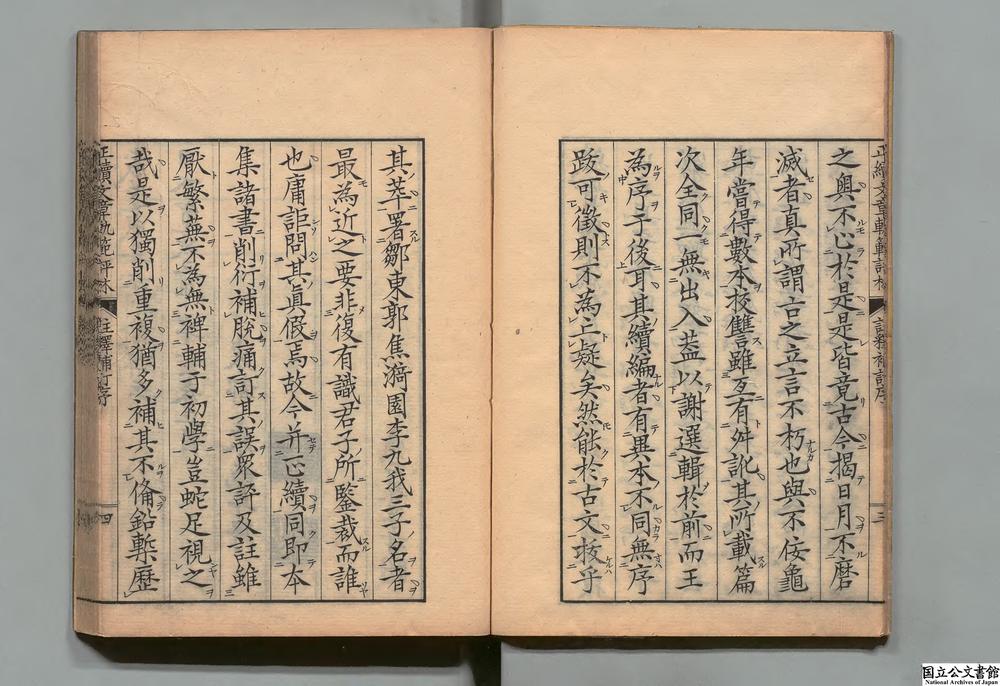 之奧不心於是是皆竟古今揭日月不磨
滅者真所謂古之立言不朽也與不佞龜
年嘗得數本校讐雖互有舛訛其所載篇
次全同一無出入蓋以謝選輯於前而王
為序于後耳其續編者有異本不同無序
跋可徵則不為上疑矣然能於古文拔乎
其萃署鄒東郭焦漪園李九我三子名者
最為近之要非復有識君子所鑒裁而誰
也庸詎問其真假焉故今并正續同即本
集諸書削衍補脫痛訂其誤眾評及註雖
厭繁蕪不為無裨輔于初學豈蛇足視之
哉是以獨削重複猶多補其不俻鉛槧歷
三
正續文章軌範評林
註釋補訂序
四
国立公文書館
National Archives of Japan